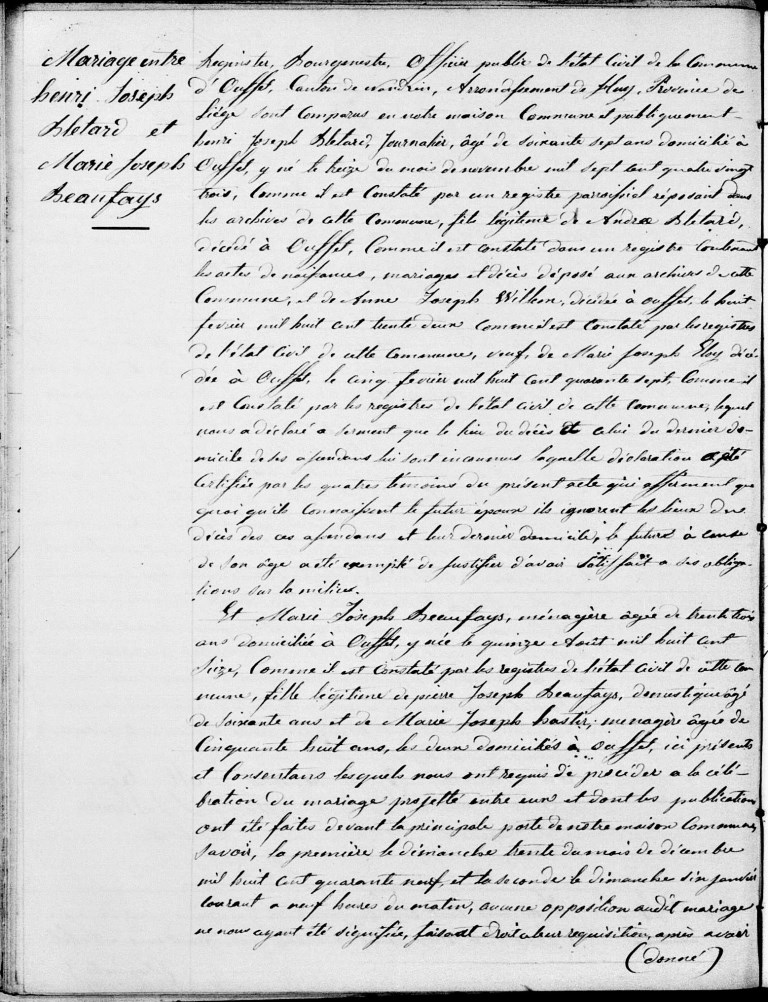 Mariage entre
henri Joseph
Bletard et
Marie Joseph
Beaufays
Bourgmestre, Officier public de l'état Civil de la Commune
d'Ouffet, Canton de Nandrin, Arrondissement de Huy, Province de
Liége sont comparus en notre maison Commune et publiquement
henri Joseph Bletard, Journalier, âgé de soixante sept ans domicilié à
Ouffet, y né le treize du mois de novembre mil sept cent quatre vingt
trois, Comme il est Constaté par un registre paroissial réposant dans
les archives de cette Commune, fils légitime de André Bletard,
décédé à Ouffet, Comme il est constaté dans un registre Contenant
les actes de naissances, mariages et décès déposé aux archives de cette
Commune, et de Anne Joseph décédée à ouffet le huit
fevrier mil huit cent trente deux comme il est Constaté par les registres
de l'état Civil de cette Commune, veuf, de Marie Joseph Eloy décé-
dée à Ouffet, le cinq fevrier mil huit cent quarante sept, Comme il
est Constaté par les registres de l'état civil de cette commune, lequel
nous a déclaré a serment que le lieu du décès et celui du dernier do-
micile de ses assendans lui sont inconnus laquelle déclaration a été
Certifiée par les quatre témoins du présent acte qui affirment que
quoi qu'ils connaissent le futur époux ils ignorent les lieux du
décès des ces assendans et leur dernier domicile, le future à cause
de son âge a été exempté de justifier d'avoir satisfait a ses obliga-
tions sur la milice.
Et Marie Joseph Beaufays, ménagère âgée de trente trois
ans domiciliée à Ouffet, y née le quinze Août mil huit cent
Seize, Comme il est Constaté par les registres de l'état Civil de cette Com
mune, fille légitime de pierre Joseph Beaufays, domestique âgé
de soixante ans et de Marie Joseph hastir, menagère âgée de
Cinquante huit ans, les deux domiciliés à ouffet, ici présents
et Consentans lesquels nous ont requis de procéder a la célé-
bration du mariage projetté entre eux et dont les publications
ont été faites devant la principale porte de notre maison Commune,
Savoir, la première le dimanche trente du mois de décembre
mil huit cent quarante neuf, et la seconde le dimanche six janvier
courant a neuf heures du matin, aucune opposition audit mariage
ne nous ayant été signifiée, faisant droit a leur requisition, après avoir
(donné)